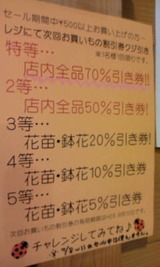 セール期間中¥500以上お買い上げの方~
レジにて次回お買いもの割引券クジ引き
※1名様1回限りです。
特等…
店内全品70%引き券!!
2等…
店内全品50%引き券!
3等…
花苗・鉢花20%引き券!
4等…
花苗・鉢花10%引き券
5等…
花苗・鉢花5%引き券
次回お買いもの割引券の有効期限は
チャレンジしてみてね♪